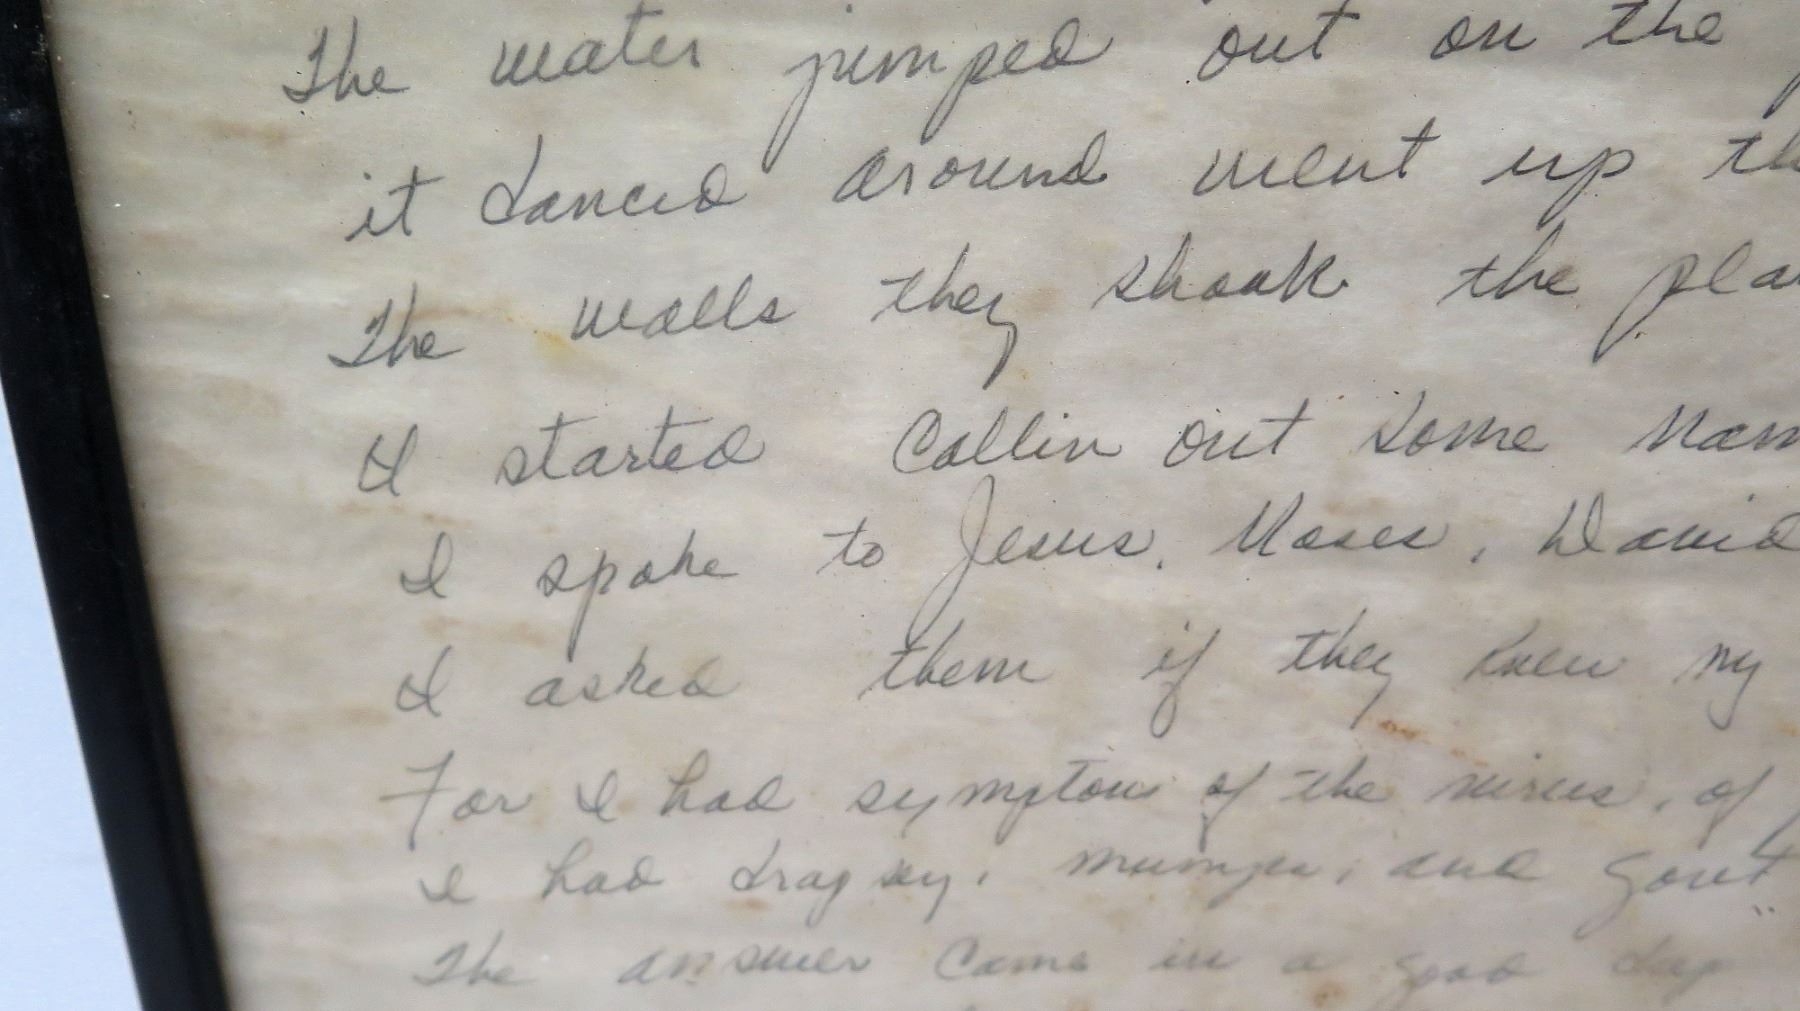 The water jumped out on the
it danced around went up th
The walls they shook the pla
I started Callin out some Nam
I spoke to Jesus, Moses, David
I asked them if they knew my
For I had symptons of the virus, of
I had dropsy, mumps, and gout
The answer came in a good